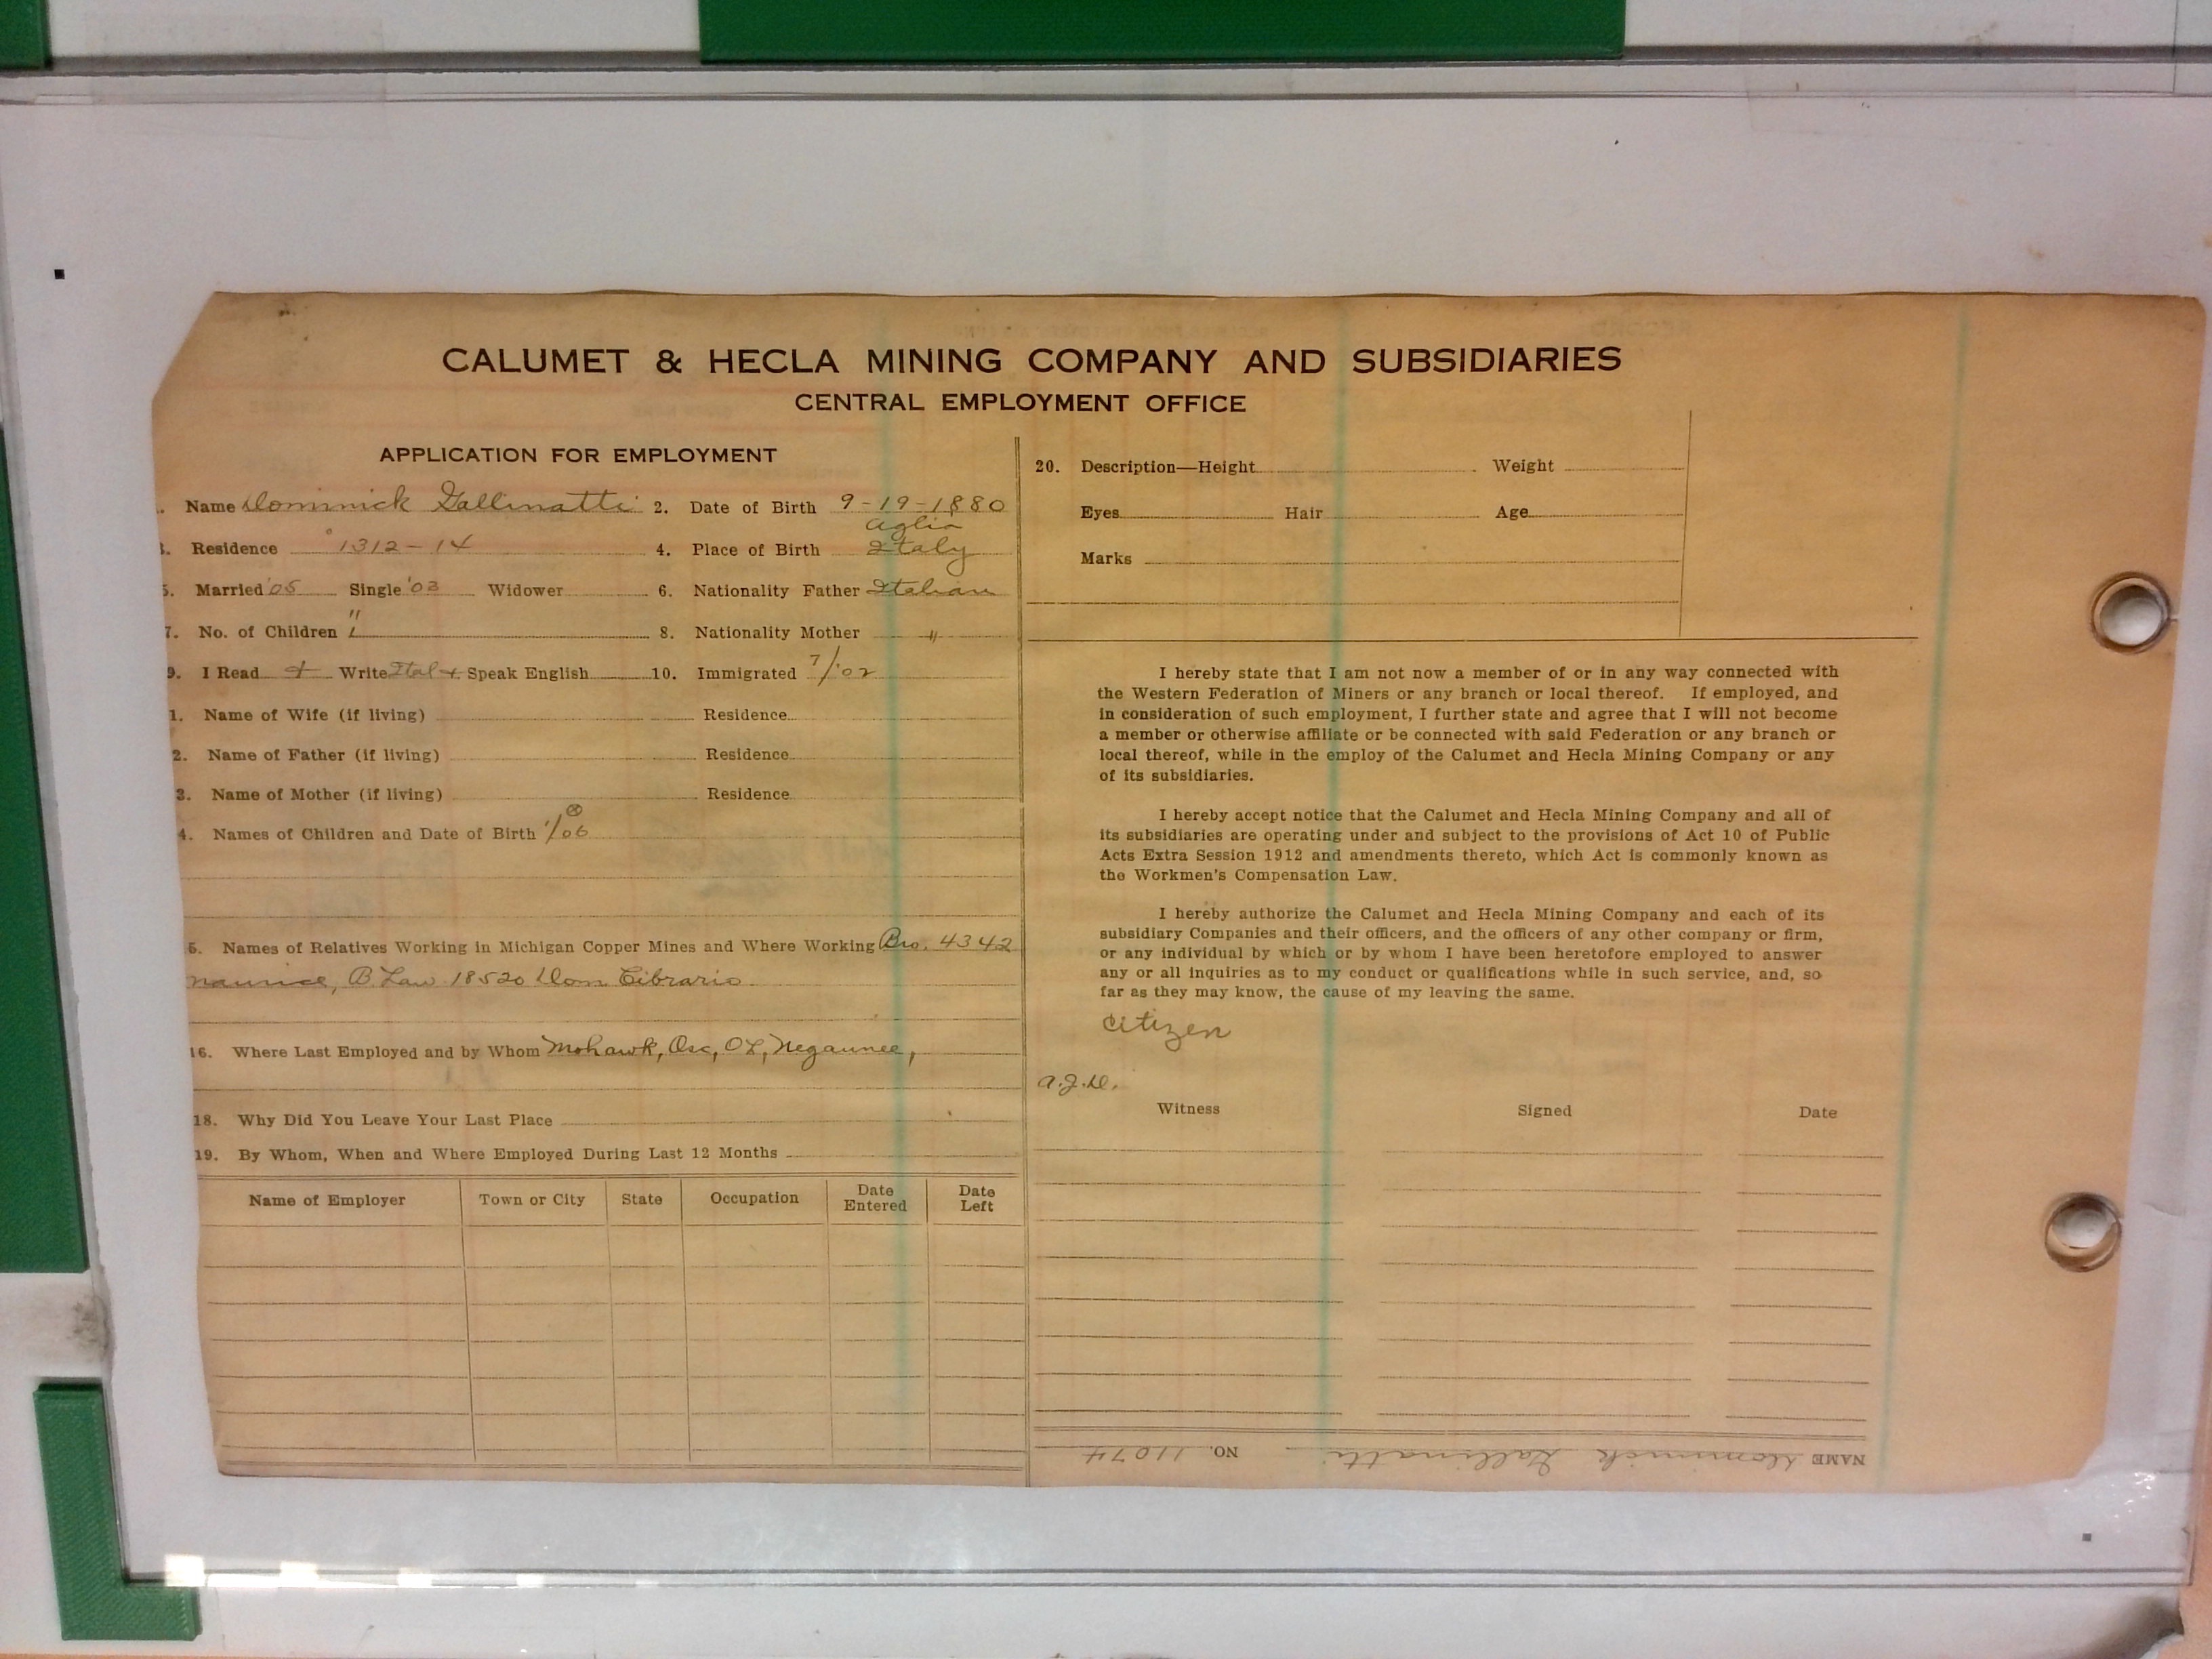 CALUMET & HECLA MINING COMPANY AND SUBSIDIARIES
CENTRAL EMPLOYMENT OFFICE
APPLICATION FOR EMPLOYMENT
. Name Dominick Gallinatti 2. Date of Birth 9-19-1880
Aglia
3. Residence 1312-14 4. Place of Birth Italy
5. Married '05 Single '03 Widower 6. Nationality Father Italian
7. No. of Children 1 8. Nationality Mother "
9. I Read + Write Ital + Speak English 10. Immigrated 7/'02
1. Name of Wife (if living) Residence
2. Name of Father (if living) Residence
3. Name of Mother (if living) Residence
4. Names of Children and Date of Birth '/06
5. Names of Relatives Working in Michigan Copper Mines and Where Working Bro. 4342
Maurice, B Law 18520 Dom Cibrario.
16. Where Last Employed and by Whom Mohawk, Osc, OL, Negaunee,
18. Why Did You Leave Your Last Place
19. By Whom, When and Where Employed During Last 12 Months
Name of Employer Town or City State Occupation Date Entered Date Left
20. Description—Height Weight
Eyes Hair Age
Marks
I hereby state that I am not now a member of or in any way connected with
the Western Federation of Miners or any branch or local thereof. If employed, and
in consideration of such employment, I further state and agree that I will not become
a member or otherwise affiliate or be connected with said Federation or any branch or
local thereof, while in the employ of the Calumet and Hecla Mining Company or any
of its subsidiaries.
I hereby accept notice that the Calumet and Hecla Mining Company and all of
its subsidiaries are operating under and subject to the provisions of Act 10 of Public
Acts Extra Session 1912 and amendments thereto, which Act is commonly known as
the Workmen's Compensation Law.
I hereby authorize the Calumet and Hecla Mining Company and each of its
subsidiary Companies and their officers, and the officers of any other company or firm,
or any individual by which or by whom I have been heretofore employed to answer
any or all inquiries as to my conduct or qualifications while in such service, and, so
far as they may know, the cause of my leaving the same.
Citizen
a.J.D.
Witness Signed Date
NAME Dominick Gallinatti NO. 11074